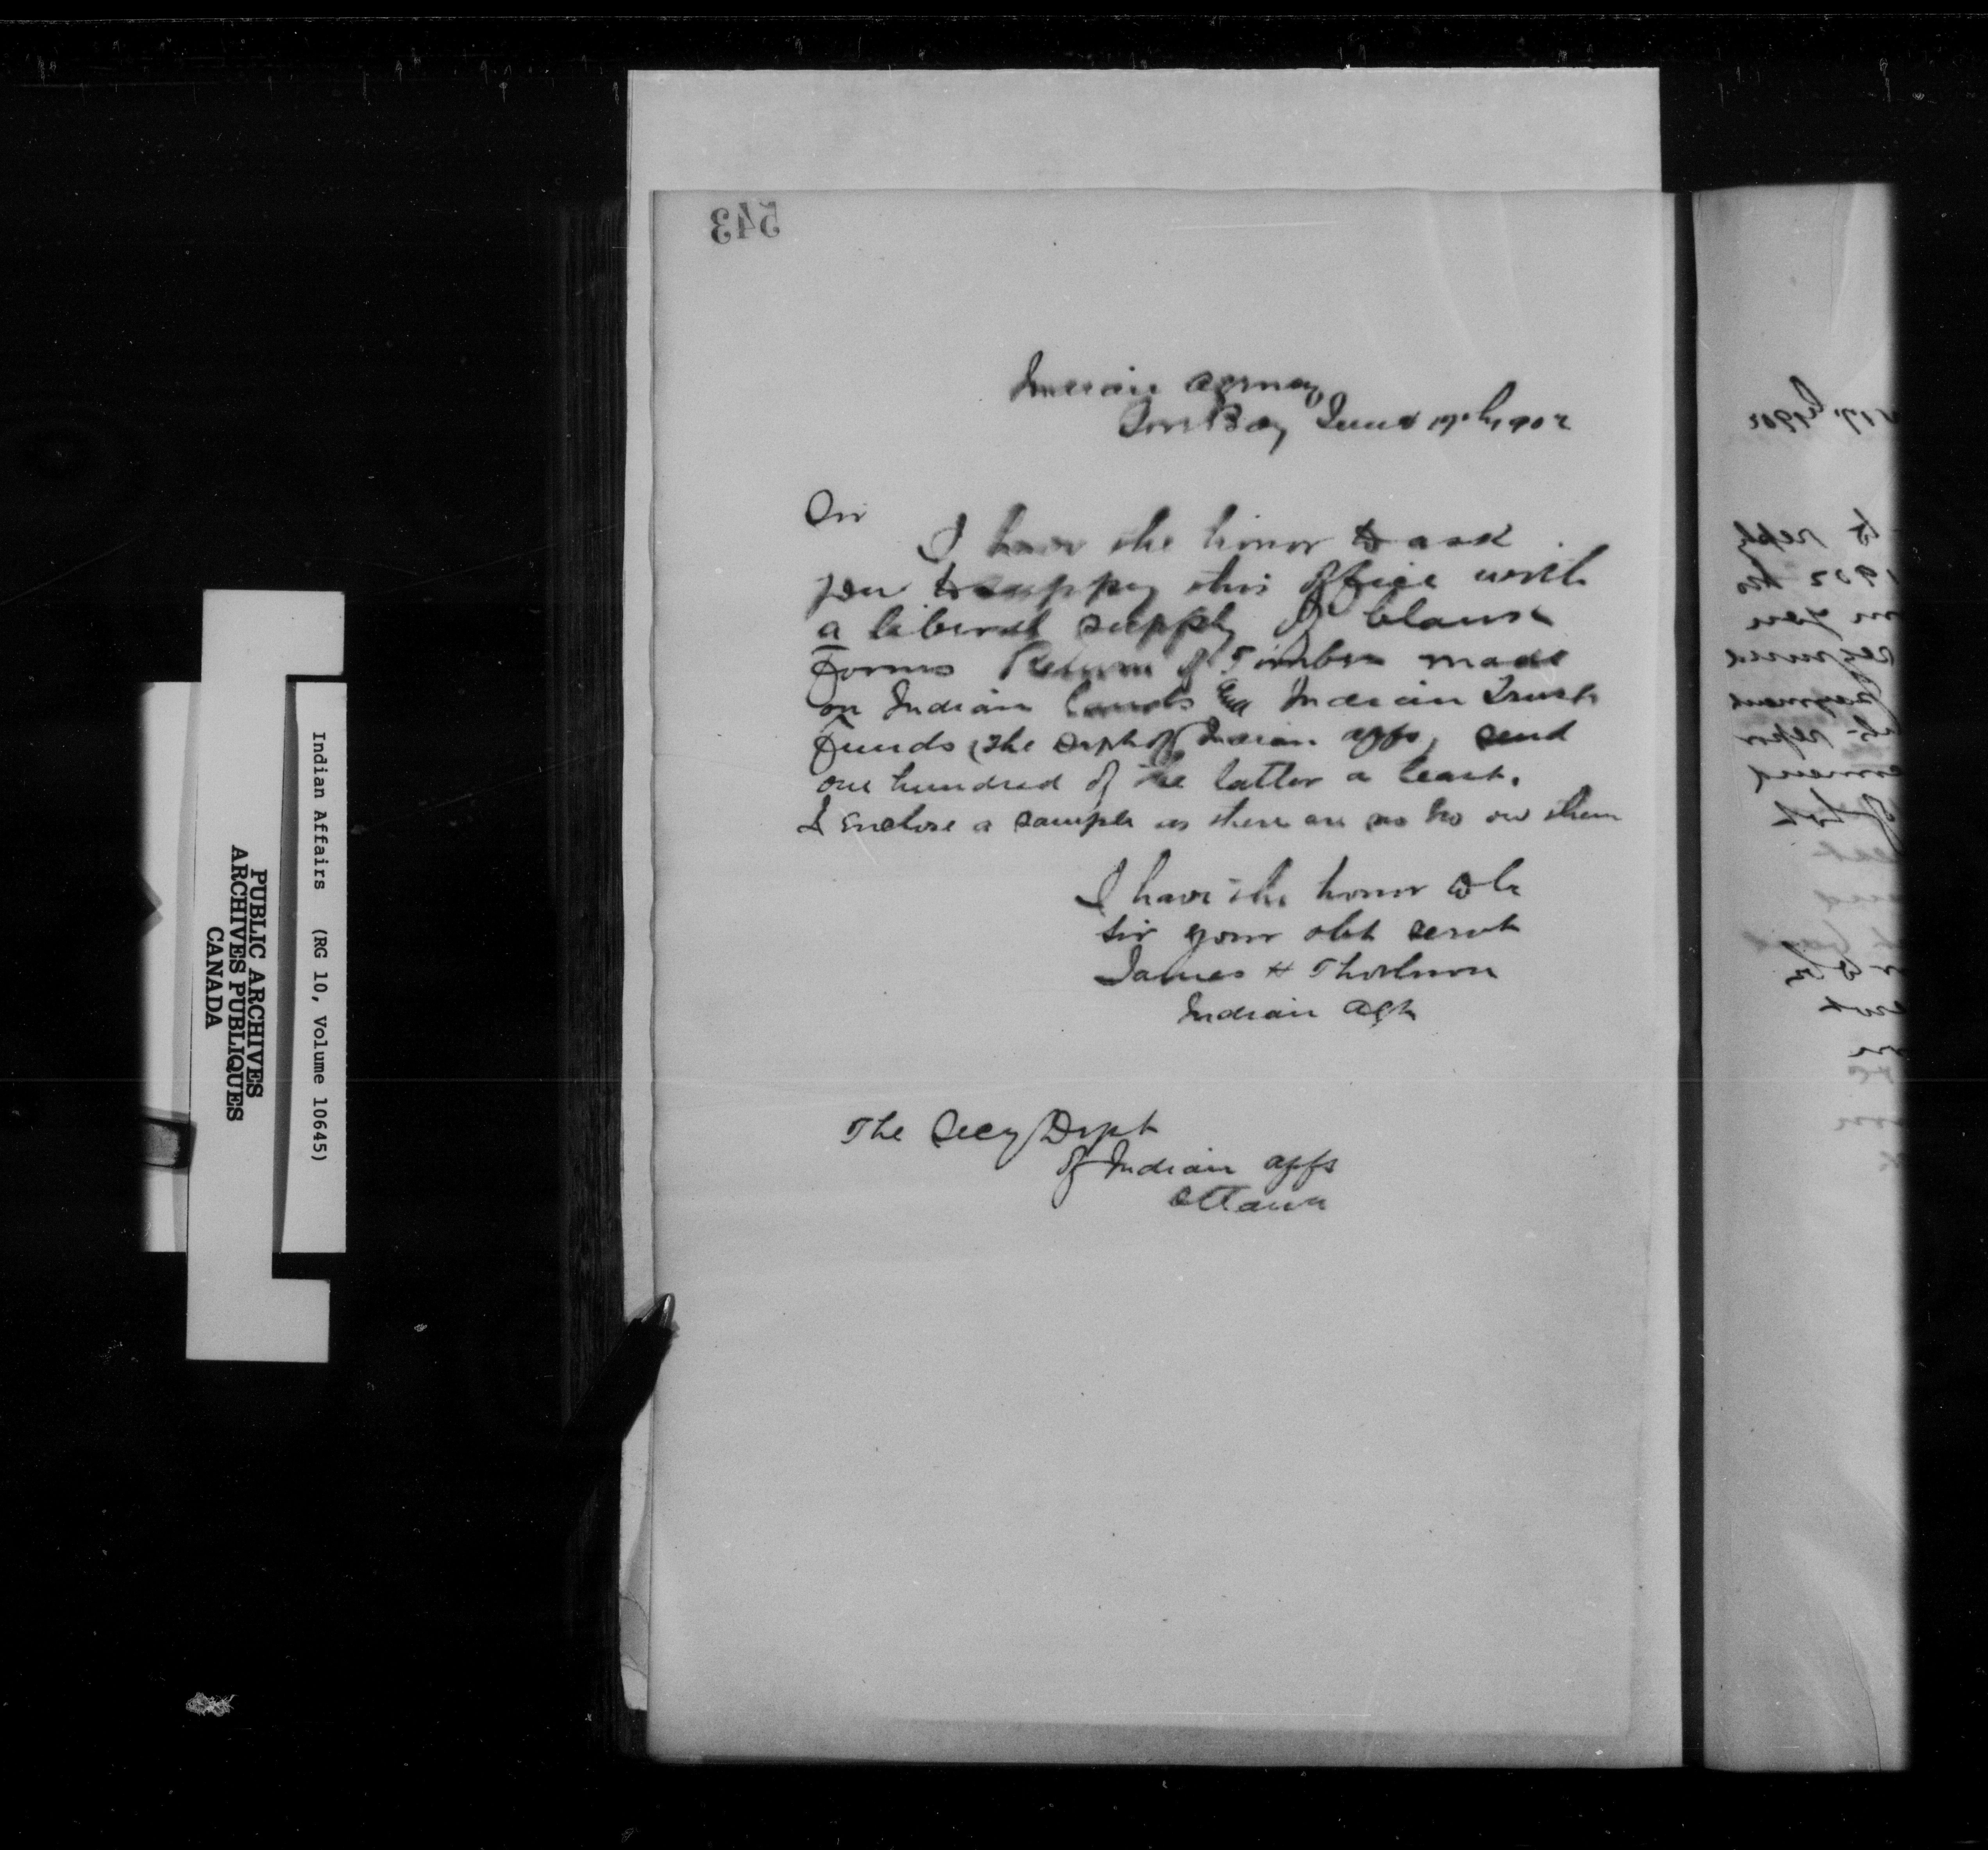 543
Indian Agency
Gore Bay June 17th 1902
Sir
I have the honor to ask
you to supply this office with
a liberal supply of blank
Forms Return of Timber made
on Indian Lands and Indian Trust
Funds, the Dept of Indian affs, send
one hundred of the latter a least.
I enclose a sample as there are no No on them
I have the honor to be
Sir your obt servt
James H Thorburn
Indian Agt
The Secy Dept
of Indian affs
Ottawa
Indian Affairs (RG 10, Volume 10645)
PUBLIC ARCHIVES
ARCHIVES PUBLIQUES
CANADA